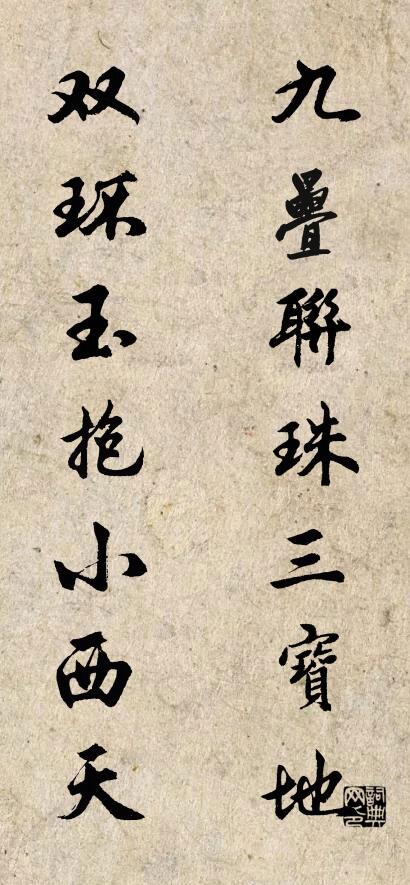 九疊聯珠三寶地
双环玉抱小西天
詞典网